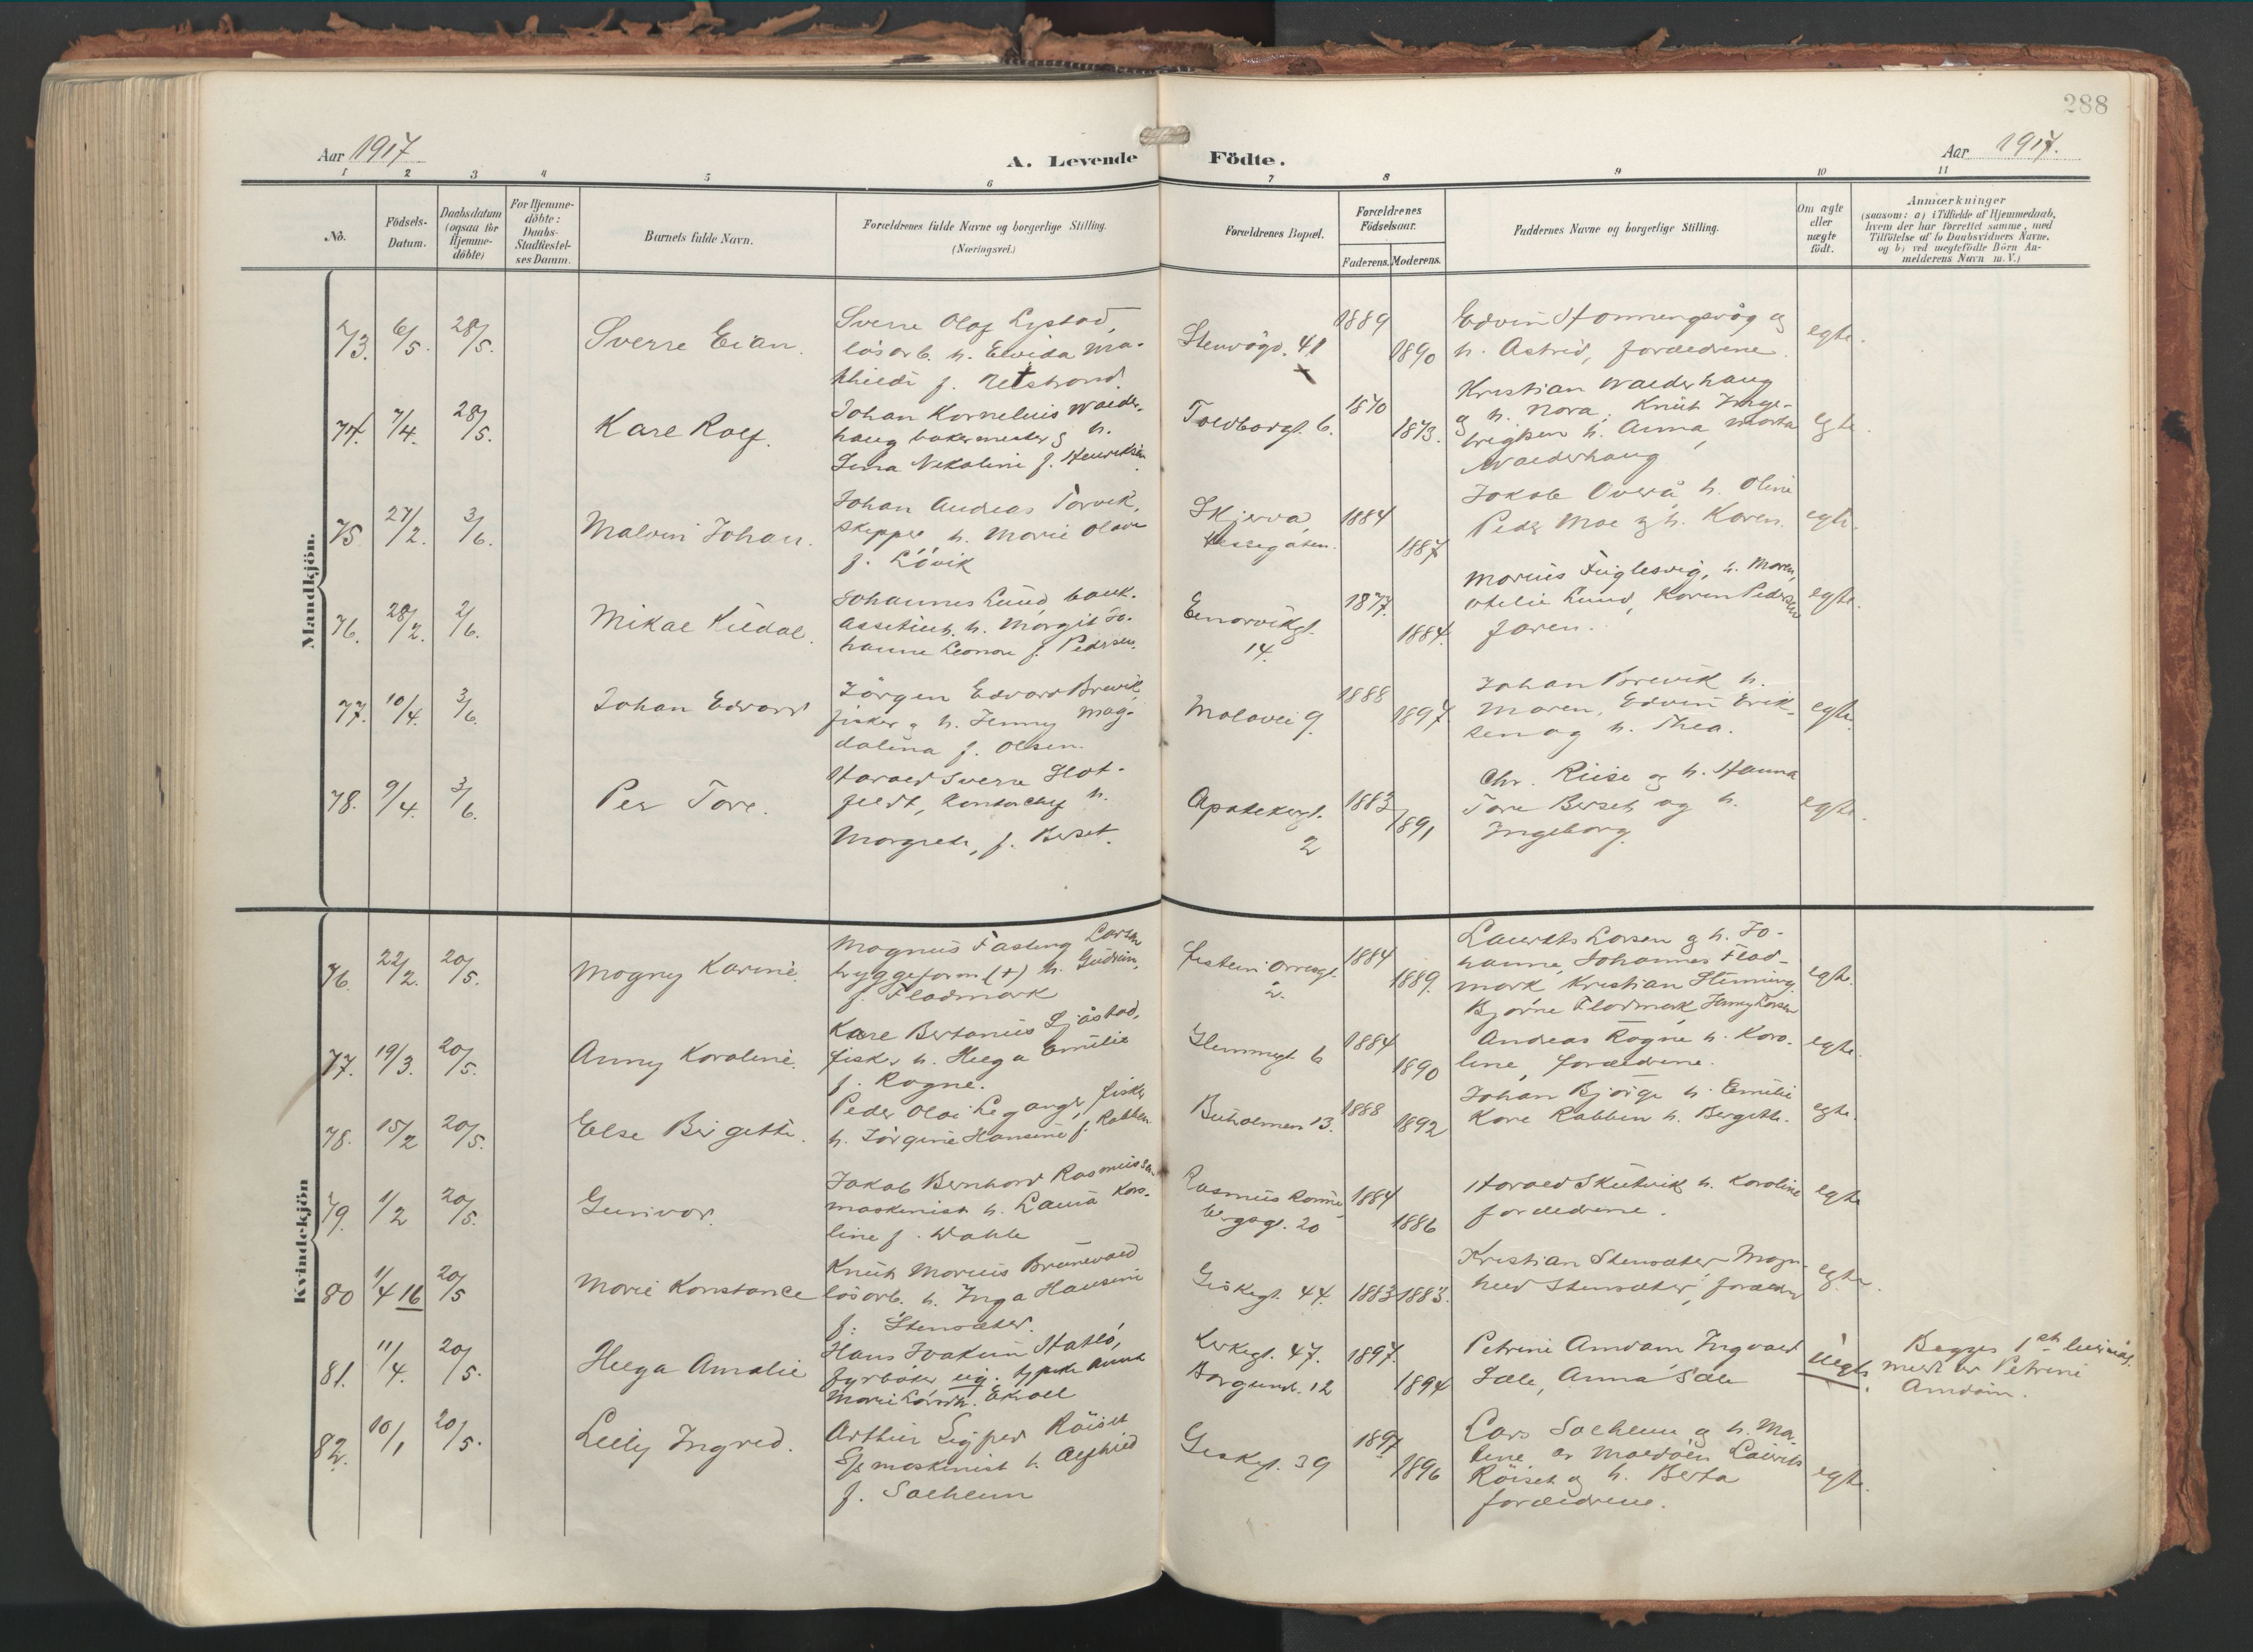 288
Aar 1917
A. Levende Födte.
Aar 1917.
1 2 3 4 5 6 7 8 9 10 11
No.
Födsels-
Datum.
Daabsdatum
(ogsaa för
Hjemme-
döbte)
For Hjemme-
döbte:
Daabs-
Stadfæstel-
ses Datum.
Barnets fulde Navn.
Forældrenes fulde Navne og borgerlige Stilling.
(Næringsvei.)
Forældrenes Bopæl.
Forældrenes
Födselsaar.
Faderens. Moderens.
Faddernes Navne og borgerlige Stilling.
Om ægte
eller
uægte
födt.
Anmærkninger
(saasom: a) i Tilfælde af Hjemmedaab,
hvem der har forrettet samme, med
Tilföielse af to Daabsvidners Navne,
og b) ved uægtefödte Börn An-
melderens Navn m. V.)
Mandkjön.
73. 6/5. 28/5.
Sverre
Sverre Olaf Lystad,
lösarb. h. Elvida Ma-
thilde f.
41
1889
1890
Edvin Honningsvåg og
h. Astrid, forældrene.
egte.
74. 7/4. 28/5.
Kåre Rolf.
Johan Kornelius Walder-
haug bakermester og h.
Lina Nikoline f. Henriksen
Toldbodgt. 6.
1870
1873.
Kristian Walderhaug
og h. Nora, Knut Inge-
brigtsen h. Anna, Marta
Walderhaug
egte.
75 27/2. 3/6.
Malvin Johan.
Johan Andreas Torvik,
skipper h. Marie Olava
f. Lövik
Skjerva
1884
1887
Jakob Overå h. Oline
Peder Moe og h. Karen.
egte.
76. 28/2. 2/6.
Mikal Kildal.
Johannes Lund, bank-
assistent h. Margit Jo-
hanne Leonore f. Pedersen.
14.
1877.
1884.
Marius Fuglesvig, h. Maren,
Otelie Lund, Karen Pedersen
faren.
egte.
77. 10/4. 3/6.
Johan Edvard
Jörgen Edvard Brevik
fisker og h. Jenny Mag-
dalena f. Olsen.
Molovei 9.
1888
1897.
Johan Brevik h.
Maren, Edvin Erik-
sen og h. Thea.
egte.
78. 9/4. 3/6.
Per Tore.
Harald Sverre Slot-
feldt, kontorchef h.
Margrete, f. Berset.
Apotekergt.
2
1883
1891
Chr. Riise og h. Hanna
Tore Berset og h.
Ingeborg.
egte.
Kvindekjön
76. 22/2. 20/5.
Magny Karine.
Magnus Fasting Larsen
byggeform (+) h. Gudrun,
f. Flodmark
2.
1884
1889.
Laurits Larsen og h. Jo-
hanne, Johannes Flod-
mark Kristian Henning,
Bjarne Flodmark, Jenny Larsen
egte.
77. 19/3. 20/5.
Anny Karoline.
Karl Bertinius Sjåstad,
fisker h. Helga Emilie
f. Rogne.
6
1884
1890
Andreas Rogne h. Karo-
line, forældrene.
egte.
78. 15/2 20/5.
Else Birgitte.
Peder Olai Legangr, fisker
h. Jörgine Hansine f. Rabben
Buholmen 13.
1888
1892
Johan Bjørge h. Emilie
Kore Rabben h. Bergitte.
egte.
79. 1/2 20/5.
Gunvor.
Jakob Bernhard Rasmussen
maskinist h. Laura Karo-
line f. Wahle
Rasmus Rönne-
bergsgt. 20
1884
1886
Harald Skutvik h. Karoline
forældrene.
egte
80 1/4 16 20/5
Marie Konstance
Knut Marius Brunevald
lösarb. h. Inga Hansine
f. Stensæter.
Giskegt. 44.
1883 1883.
Kristian Stensæter Magn-
hild Stensæter, forældre
egte.
81. 11/4. 20/5.
Helga Amalie
Hans Joakim Hatlö,
fyrböter ug. og pike Anna
Marie
Kirkegt. 47.
Borgund. 12
1897.
1894
Petrine Amdam Ingvald
Sæle, Anna Sæle
uegte.
Begges 1ste
meldt av Petrine
Amdam.
82. 10/1 20/5.
Lilly Ingrid.
Arthur Sigfred Röiset
maskinist h. Alfhild
f. Solheim
Giskegt. 39
1897
1896
Lars Solheim og h. Ma-
line, av Molden Laurits
Röiset og h. Berta
forældrene.
egte.